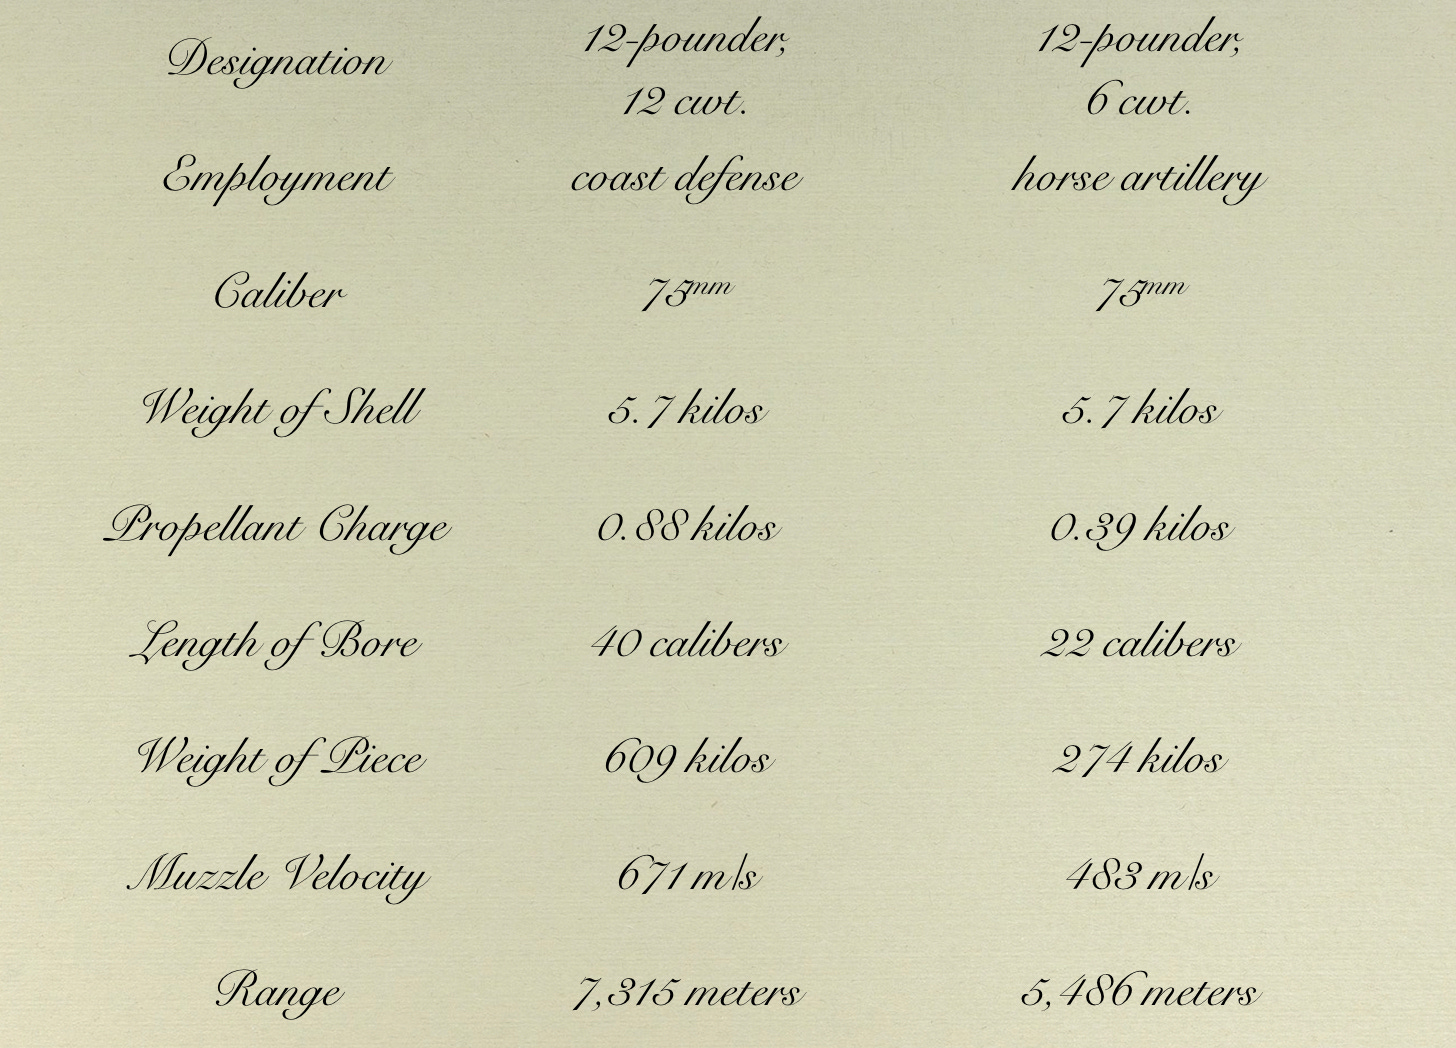 Designation 12-pounder, 12-pounder,
12 cwt. 6 cwt.
Employment coast defense horse artillery
Caliber 75mm 75mm
Weight of Shell 5.7 kilos 5.7 kilos
Propellant Charge 0.88 kilos 0.39 kilos
Length of Bore 40 calibers 22 calibers
Weight of Piece 609 kilos 274 kilos
Muzzle Velocity 671 m/s 483 m/s
Range 7,315 meters 5,486 meters